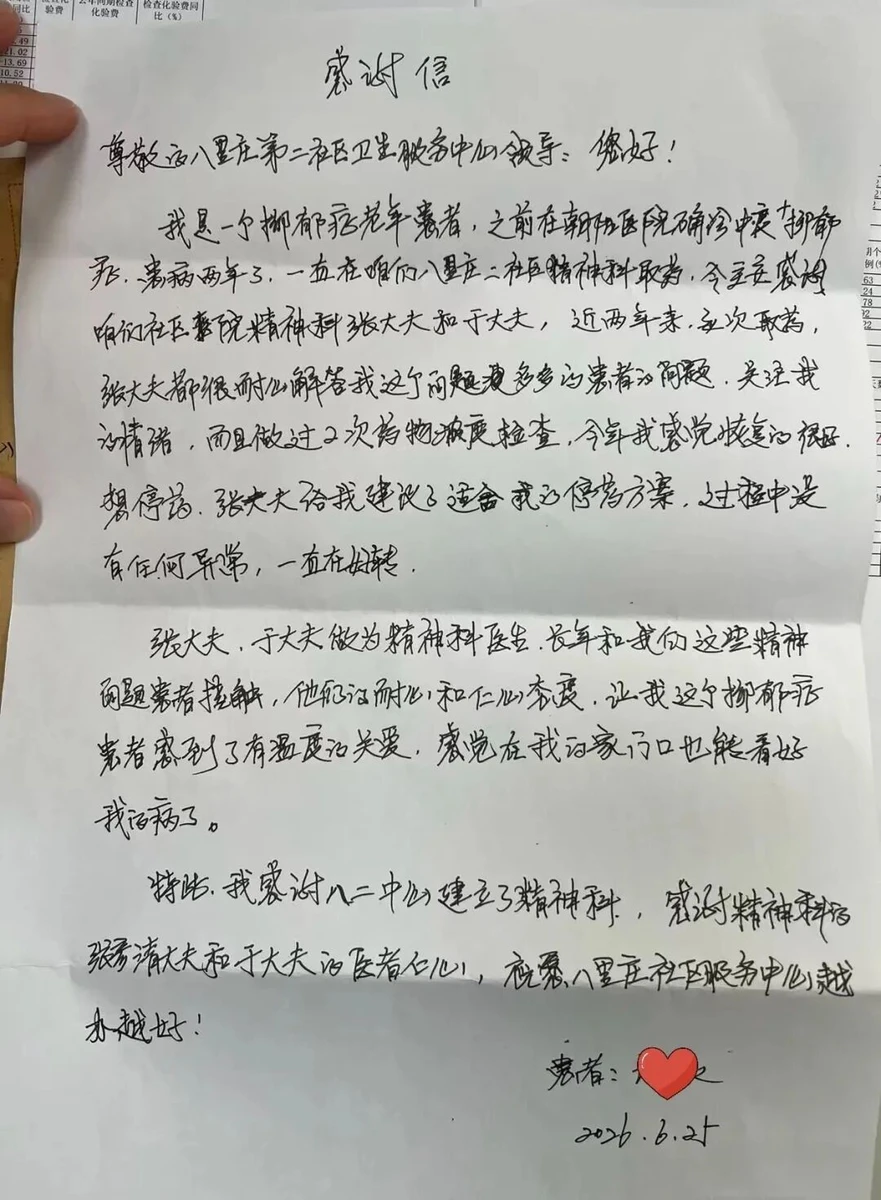 同比
检查化验费
去年同期检查化验费
检查化验费同比（%）
.49
21.02
-13.69
10.52
感谢信
尊敬的八里庄第二社区卫生服务中心领导：您好！
我是一个抑郁症老年患者，之前在朝阳医院确诊中度+抑郁
症，患病两年了，一直在咱们八里庄二社区精神科取药，今主要感谢
咱们社区医院精神科张大夫和于大夫，近两年来，每次取药，
张大夫都很耐心解答我这个问题多多的患者的问题，关注我
的情绪，而且做过2次药物浓度检查，今年我感觉恢复的很好，
想停药，张大夫给我建议了适合我的停药方案，过程中没
有任何异常，一直在好转．
张大夫、于大夫做为精神科医生，长年和我们这些精神
问题患者接触，他们的耐心和仁心态度，让我这个抑郁症
患者感到了有温度的关爱，感觉在我的家门口也能看好
我的病了。
特此，我感谢八二中心建立了精神科，感谢精神科的
张彦清大夫和于大夫的医者仁心，祝愿八里庄社区服务中心越
办越好！
患者：
2026.6.25